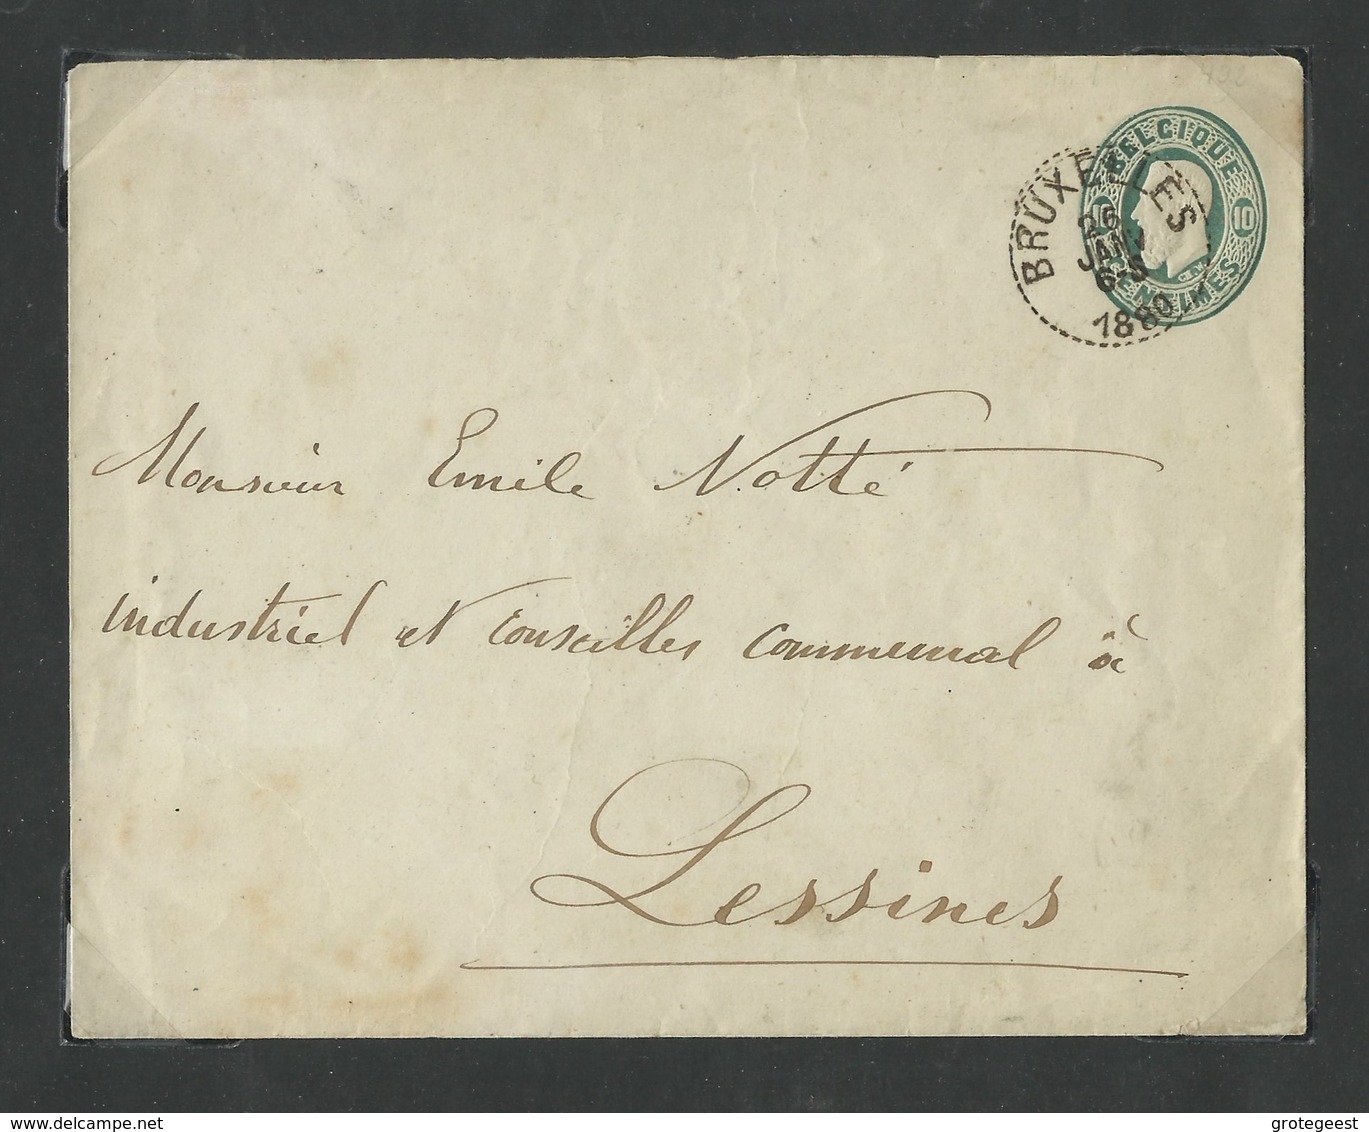 BELGIQUE
10 10
CENTIMES
BRUXELLES
26
JANV
6-S
1880
Monsieur Emile Notté
industriel et conseilles communal à
Lessines
delcampe.net
grotegeest